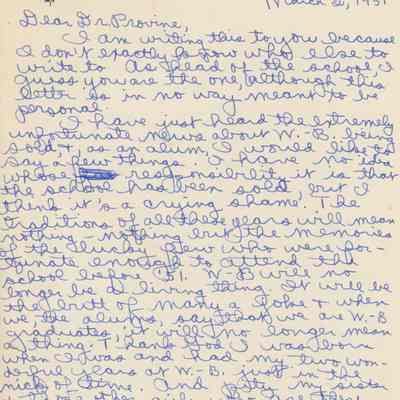 March 20, 1951
Dear Dr. Provine,
I am writing this to you because
I don't exactly know who else to
write to. As head of the school, I
guess you are the one, although this
letter is in no way meant to be
personal.
I have just heard the extremely
unfortunate news about W.-B. being
sold, &, as an alum, I would like to
say a few things. I have no idea
whose responsibility it is that
the school has been sold, but I
think it's a crying shame. The
traditions of all these years will mean
nothing - nothing but the memories
of the lucky few who were for-
tunate enough to attend the
school before '51. W-B will no
longer be a living thing. It will be
the butt of many a joke & when
we, the alums, say that we are W.-B
graduates, it will no longer mean
a thing. Thank God I was born
when I was and had my two won-
derful years at W.-B. just in the
nick of time. And pity my sister
other girls who